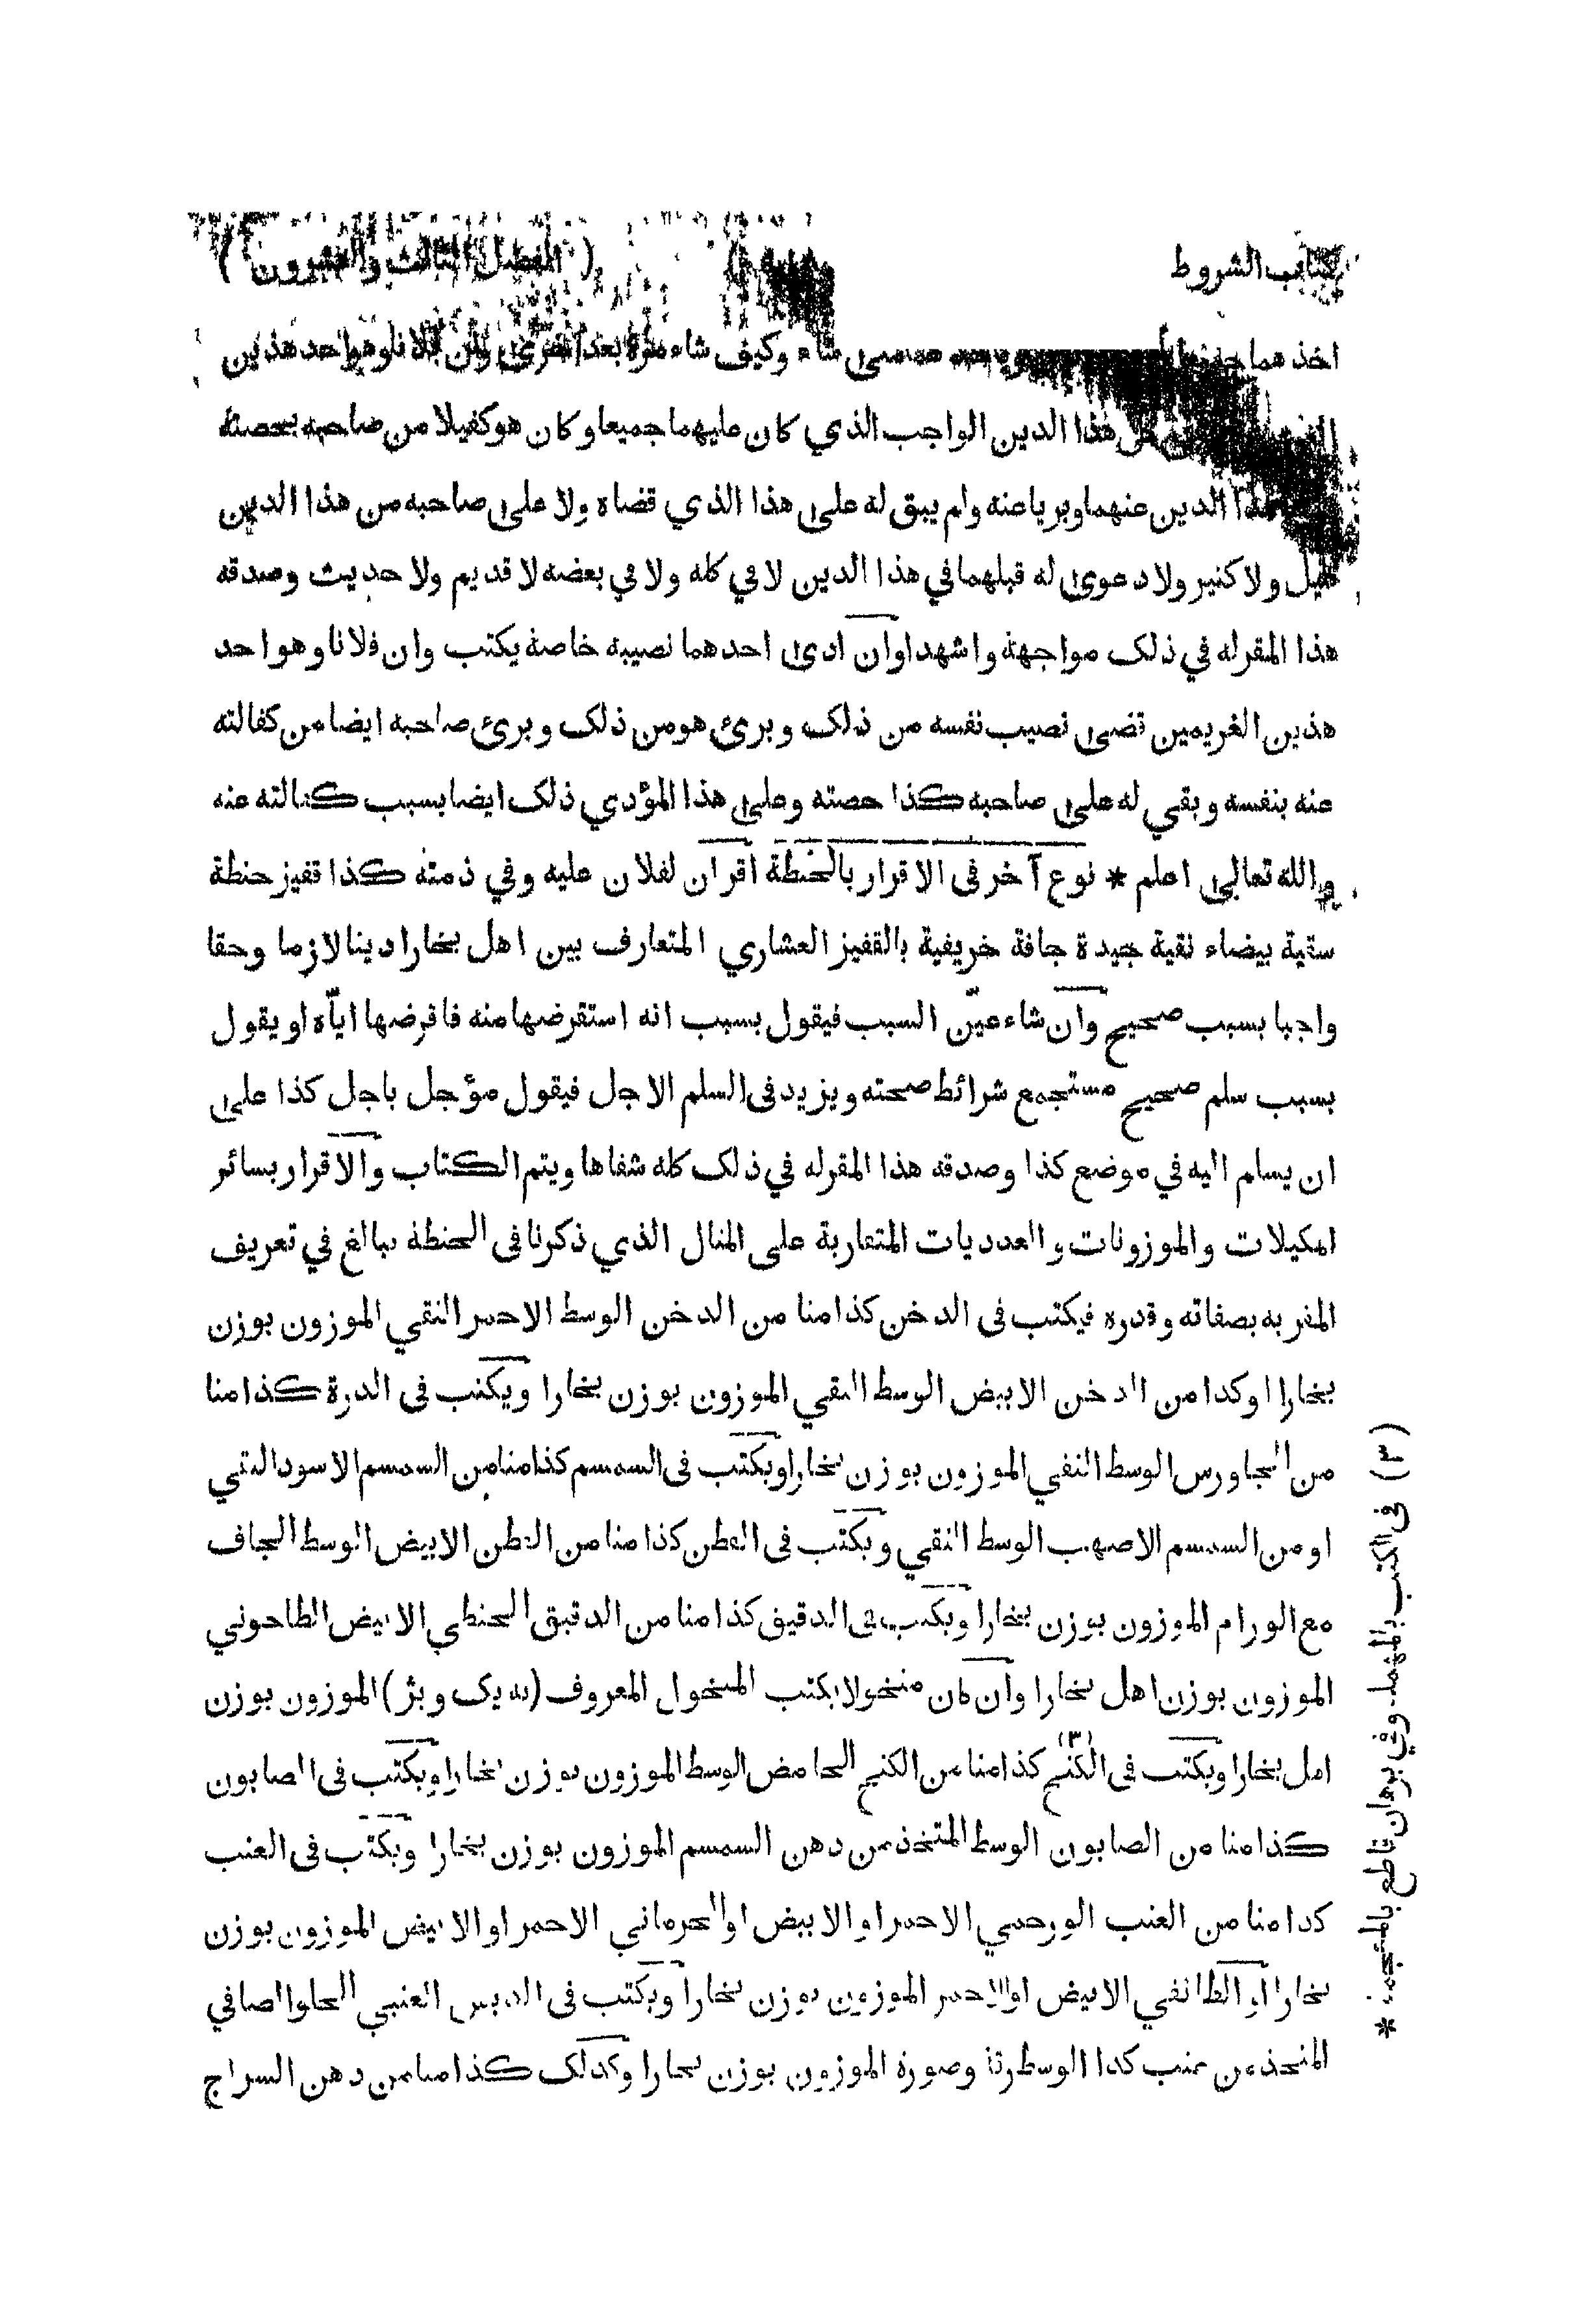 كتاب الشروط ( ) ( الفصل الثالث والعشرون )
اخذهما شاء وكيف شاء مرة بعد اخرى وان فلانا وهو احد هذين
هذا الدين الواجب الذي كان عليهما جميعا وكان هو كفيلا من صاحبه بحصته
هذا الدين عنهما وبريا عنه ولم يبق له على هذا الذي قضاه ولا على صاحبه من هذا الدين
قليل ولا كثير ولا دعوى له قبلهما في هذا الدين لا في كله ولا في بعضه لا قديم ولا حديث وصدقه
هذا المقر له في ذلك مواجهة واشهدا وان ادى احدهما نصيبه خاصة يكتب وان فلانا وهو احد
هذين الغريمين قضى نصيب نفسه من ذلك وبرئ هو من ذلك وبرئ صاحبه ايضا من كفالته
عنه بنفسه وبقي له على صاحبه كذا حصته وعلى هذا المؤدي ذلك ايضا بسبب كفالته عنه
والله تعالى اعلم * نوع آخر فى الاقرار بالحنطة اقر ان لفلان عليه وفي ذمته كذا قفيز حنطة
سقية بيضاء نقية جيدة جافة خريفية بالقفيز العشاري المتعارف بين اهل بخارا دينا لازما وحقا
واجبا بسبب صحيح وان شاء عيّن السبب فيقول بسبب انه استقرضها منه فاقرضها ايّاه او يقول
بسبب سلم صحيح مستجمع شرائط صحته ويزيد فى السلم الاجل فيقول مؤجل باجل كذا على
ان يسلم اليه في موضع كذا وصدقه هذا المقر له في ذلك كله شفاها ويتم الكتاب والاقرار بسائر
المكيلات والموزونات والعدديات المتقاربة على المثال الذي ذكرنا فى الحنطة يبالغ في تعريف
المقر به بصفاته وقدره فيكتب فى الدخن كذا منا من الدخن الوسط الاحمر النقي الموزون بوزن
بخارا او كذا من الدخن الابيض الوسط النقي الموزون بوزن بخارا ويكتب فى الذرة كذا منا
من الجاورس الوسط النقي الموزون بوزن بخارا ويكتب فى السمسم كذا منا من السمسم الاسود النقي
او من السمسم الاصهب الوسط النقي ويكتب فى القطن كذا منا من القطن الابيض الوسط الجاف
مع الورام الموزون بوزن بخارا ويكتب فى الدقيق كذا منا من الدقيق الحنطي الابيض الطاحوني
الموزون بوزن اهل بخارا وان كان منخولا يكتب المنخول المعروف (ده يك وبژ) الموزون بوزن
اهل بخارا ويكتب فى الكنج (٣) كذا منا من الكنج الحامض الوسط الموزون بوزن بخارا ويكتب فى الصابون
كذا منا من الصابون الوسط المتخذ من دهن السمسم الموزون بوزن بخارا ويكتب فى العنب
كذا منا من العنب الاحمر او الابيض او الاحمر او الابيض الموزون بوزن
بخارا او الطائفي الابيض او الاحمر الموزون بوزن بخارا ويكتب فى الدبس العنبي الحلو الصافي
المتخذ من عنب كذا الوسط رقة وصورة الموزون بوزن بخارا وكذلك كذا منا من دهن السراج
(٣) فى اكثر الكتب بالمهملة وفي برهان قاطع بالمعجمة *